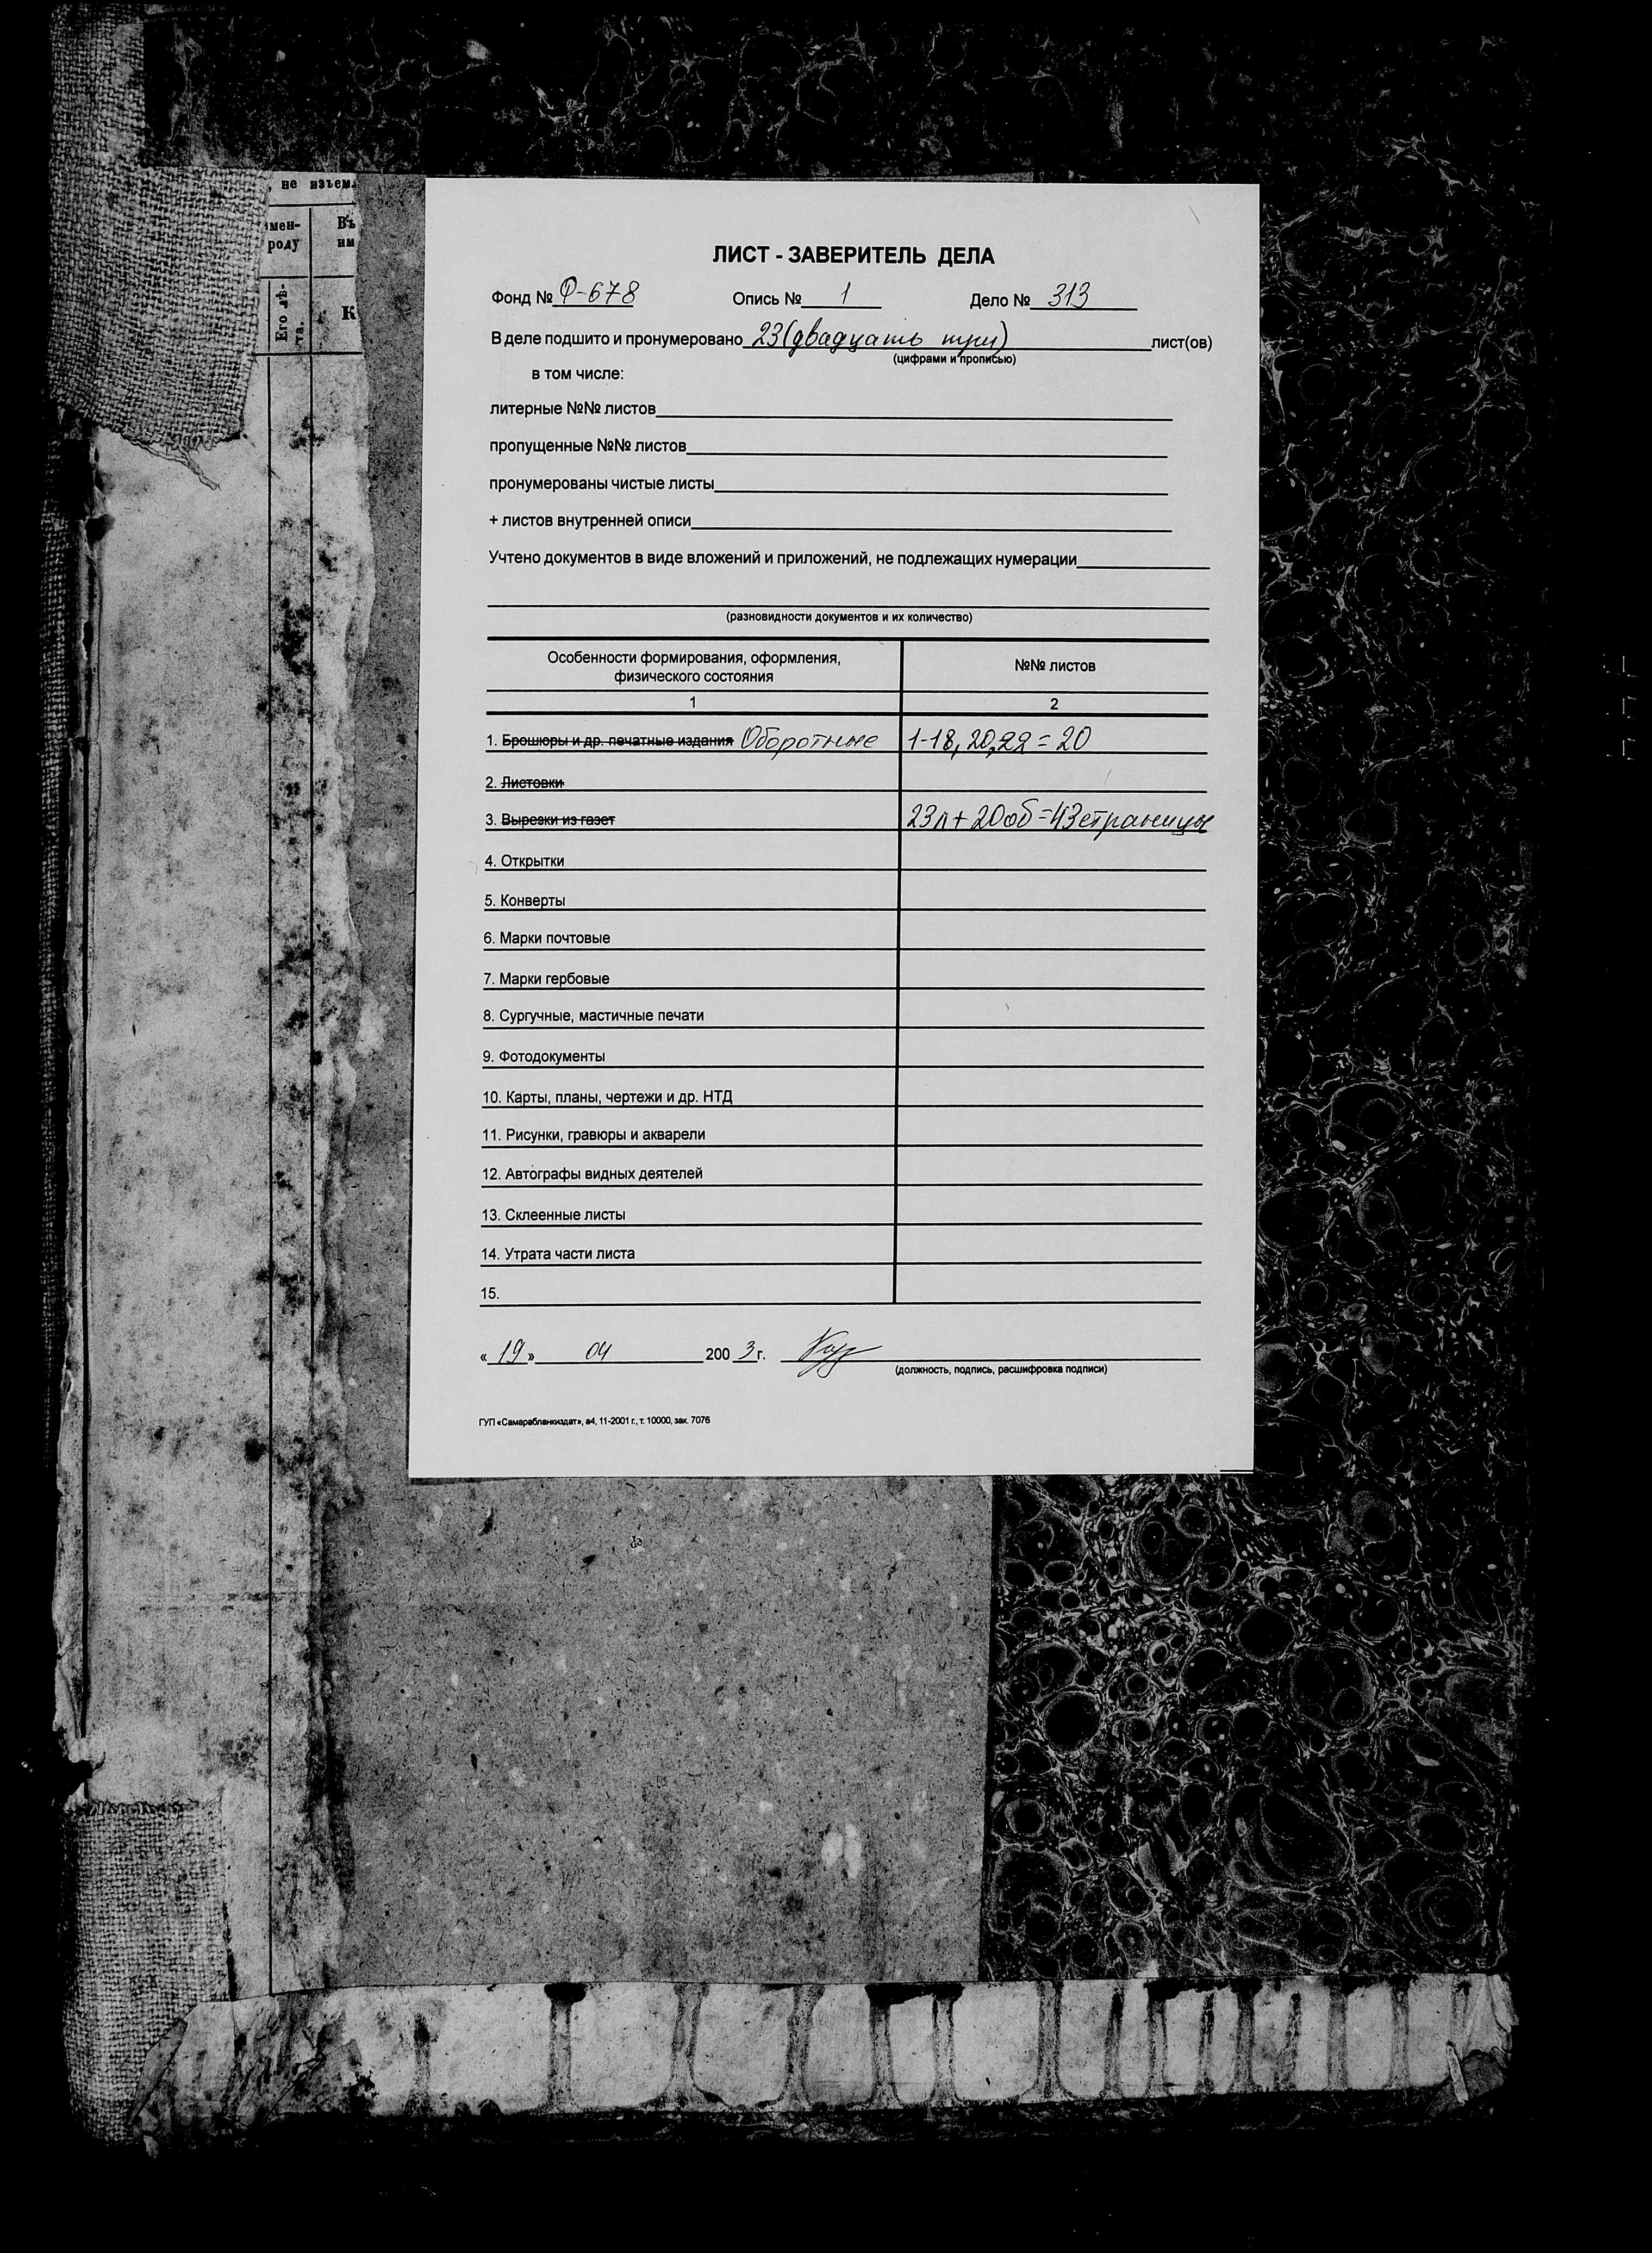 , не изъем
мен-
роду
Въ
им
Его лѣ-
та.
К
ЛИСТ - ЗАВЕРИТЕЛЬ ДЕЛА
Фонд № Ф-678 Опись № 1 Дело № 313
В деле подшито и пронумеровано 23 (двадцать три) лист(ов)
(цифрами и прописью)
в том числе:
литерные №№ листов
пропущенные №№ листов
пронумерованы чистые листы
+ листов внутренней описи
Учтено документов в виде вложений и приложений, не подлежащих нумерации
(разновидности документов и их количество)
Особенности формирования, оформления,
физического состояния
№№ листов
1 2
1. Брошюры и др. печатные издания Оборотные 1-18, 20, 22 = 20
2. Листовки
3. Вырезки из газет 23л + 20об = 43 страницы
4. Открытки
5. Конверты
6. Марки почтовые
7. Марки гербовые
8. Сургучные, мастичные печати
9. Фотодокументы
10. Карты, планы, чертежи и др. НТД
11. Рисунки, гравюры и акварели
12. Автографы видных деятелей
13. Склеенные листы
14. Утрата части листа
15.
« 19 » 04 200 3 г.
(должность, подпись, расшифровка подписи)
ГУП «Самарабланкиздат», а4, 11-2001 г., т. 10000, зак. 7076